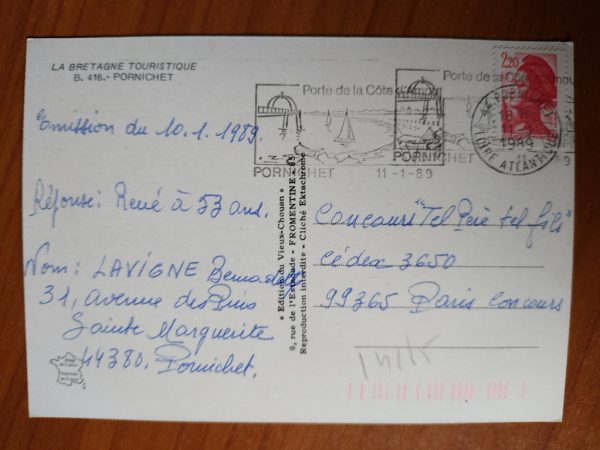 LA BRETAGNE TOURISTIQUE
B. 416.- PORNICHET
Emission du 10.1.1989.
Réponse: René à 53 ans.
Nom: LAVIGNE Bernadette
31, Avenue des Pins
Sainte Marguerite
44380. Pornichet.
« Edition du Vieux-Chouan »
9, rue de l'Estacade - FROMENTINE - 85
Reproduction interdite - Cliché Ektachrome
Porte de la Côte d'Amour
PORNICHET
11-1-89
Porte de la Côte d'Amour
PORNICHET
2,20
44 PORNICHET
1989
LOIRE ATLANTIQUE
Concours "Tel Père tel fils"
Cédex 3650
99365 Paris Concours